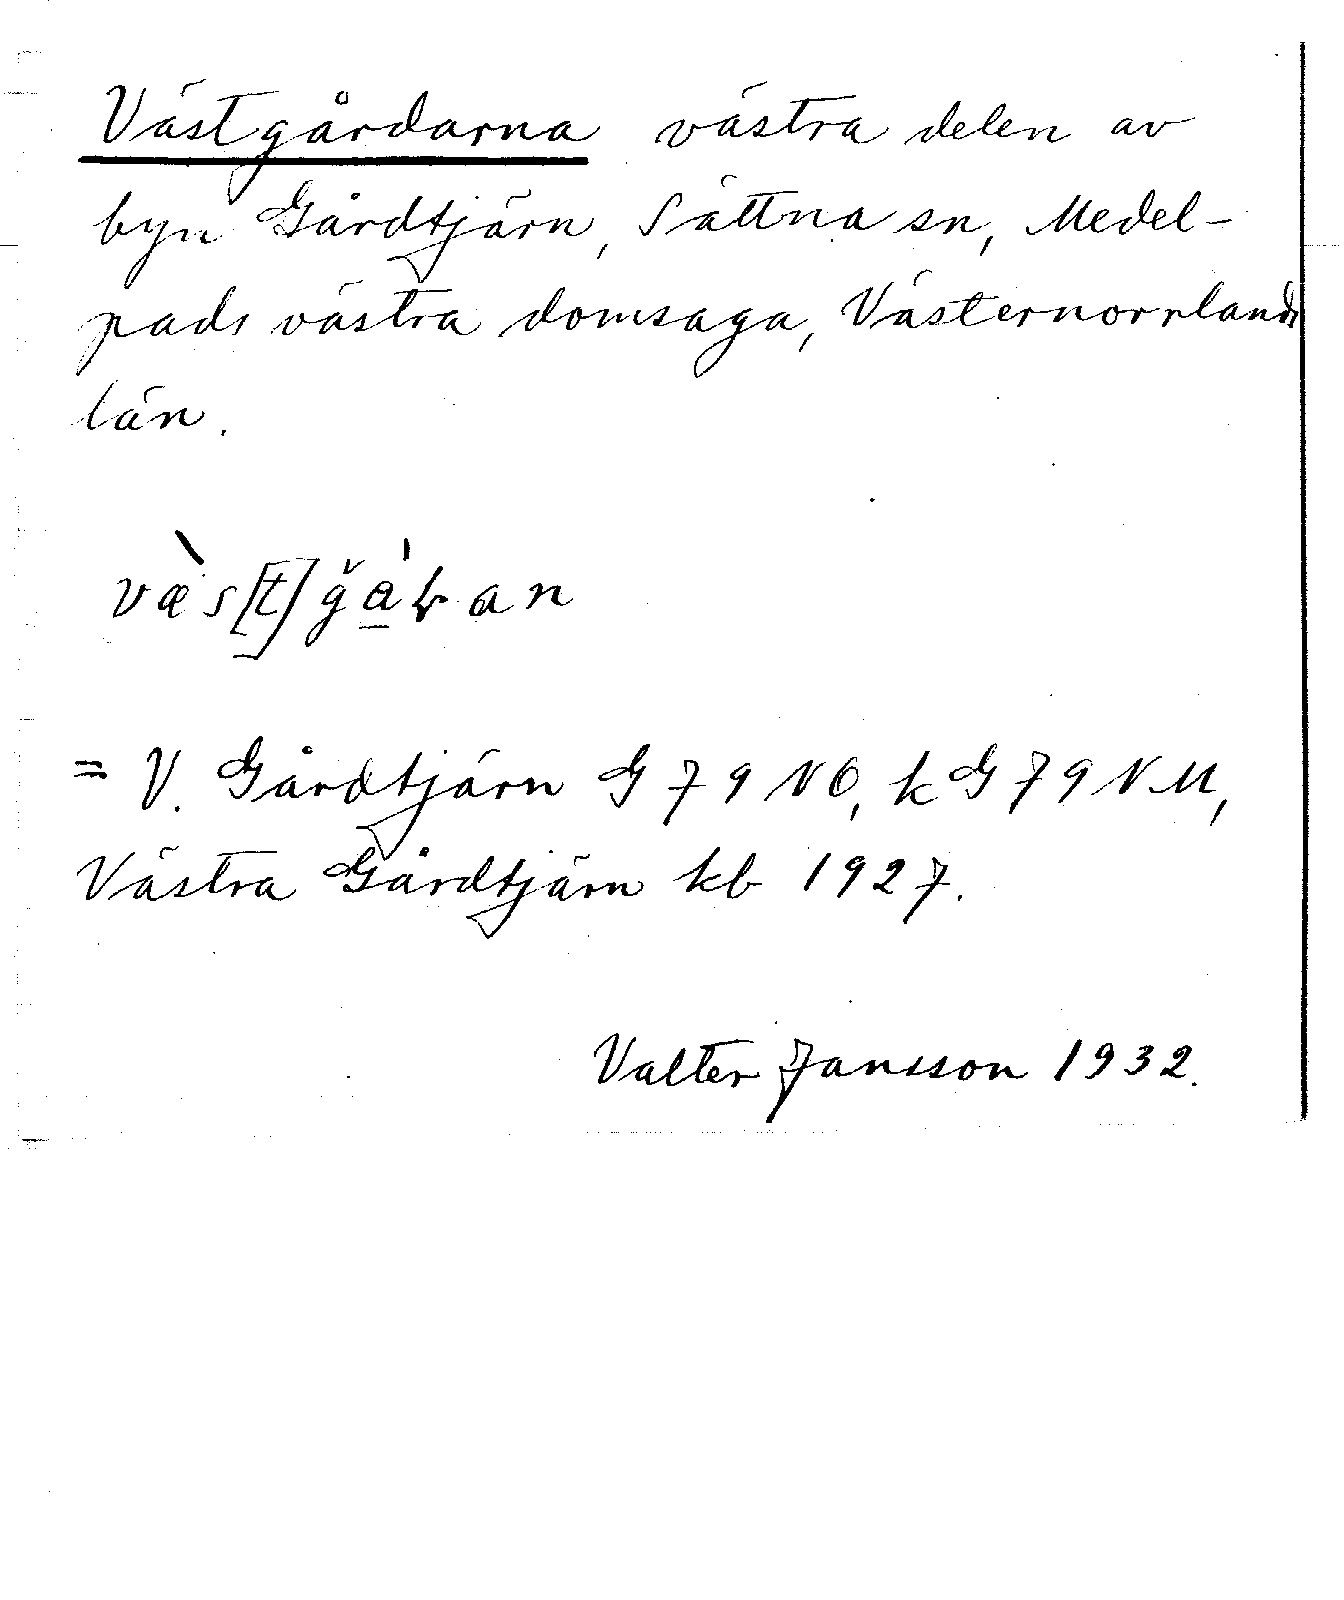 Västgårdarna västra delen av
byn Gårdtjärn, Sättna sn, Medel-
pads västra domsaga, Västernorrlands
län.
væ̀s[t]ǧa̱̍ɽan
= V. Gårdtjärn G 79 NO, kG 79 NM,
Västra Gårdtjärn kb 1927.
Valter Jansson 1932.